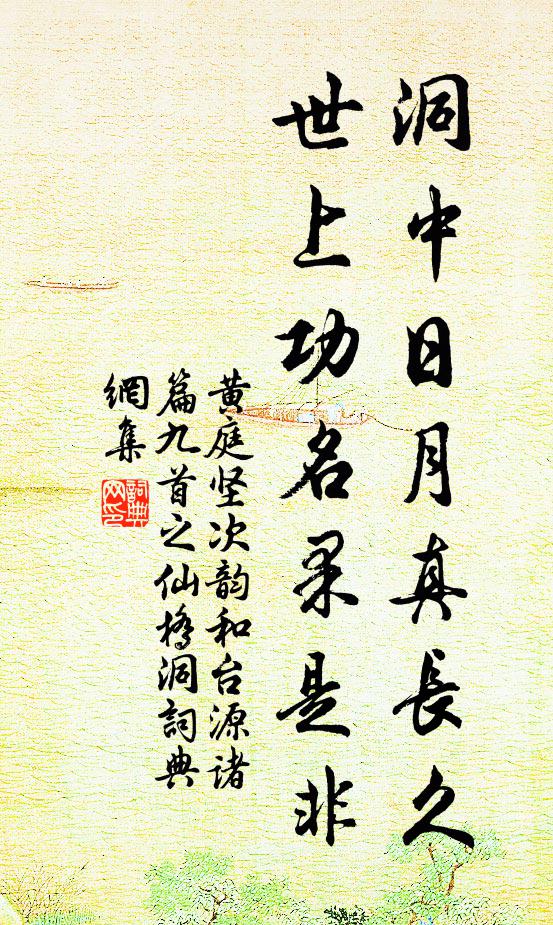 洞中日月真長久
世上功名果是非
黄庭坚次韵和台源诸
篇九首之仙橋洞詞典
網集
詞典
网印